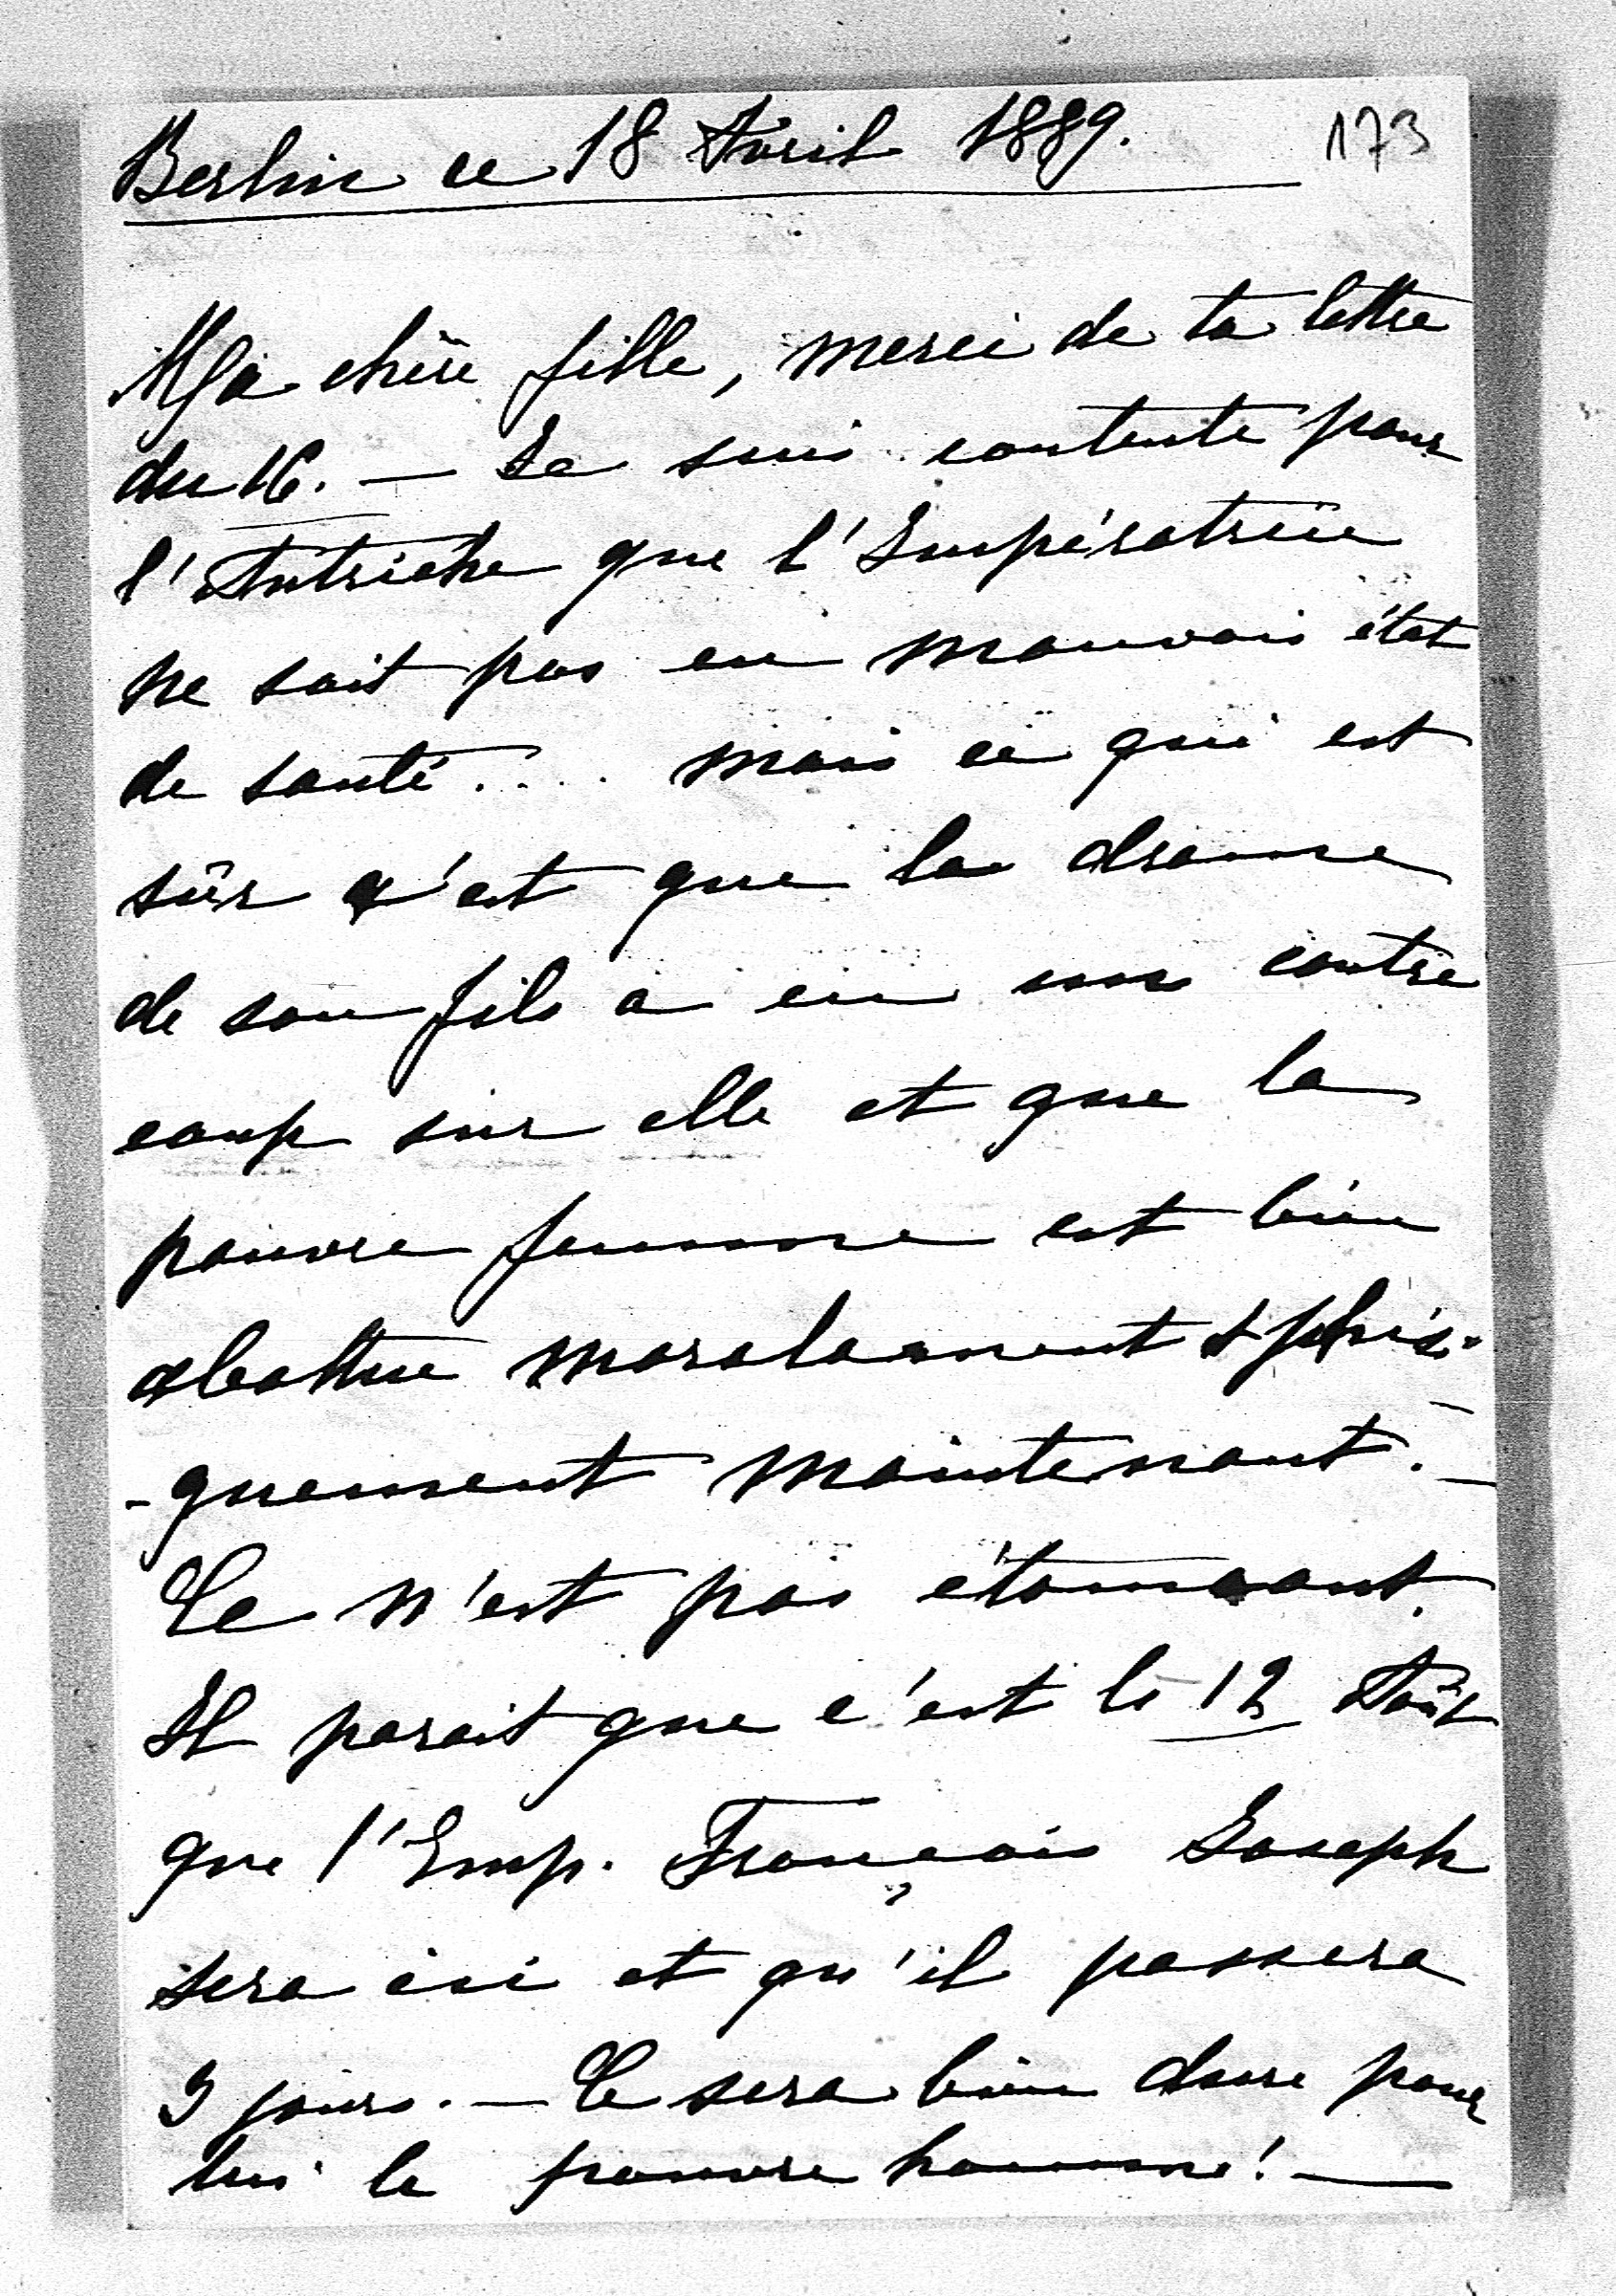 Berlin ce 18 Avril 1889. 173
Ma chère fille, merci de ta lettre
du 16. — Je suis contente pour
l'Autriche que l'Impératrice
ne soit pas en mauvais état
de santé.... mais ce qui est
sûr c'est que le drame
de son fils a eu son contre
coup sur elle et que la
pauvre femme est bien
abattue moralement & phisi-
-quement maintenant. —
Ce n'est pas étonnant.
Il parait que c'est le 12 Août
que l'Emp. François Joseph
sera ici et qu'il passera
3 jours. — Ce sera bien dure pour
lui le pauvre homme! —